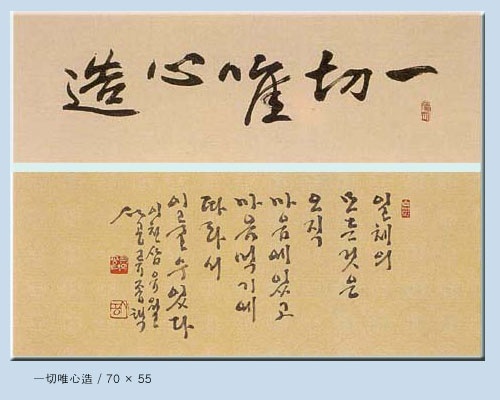 一切唯心造
일체의
모든것은
오직
마음에있고
마음먹기에
따라서
이룰수있다
이천삼 유월
一切唯心造 / 70 × 55